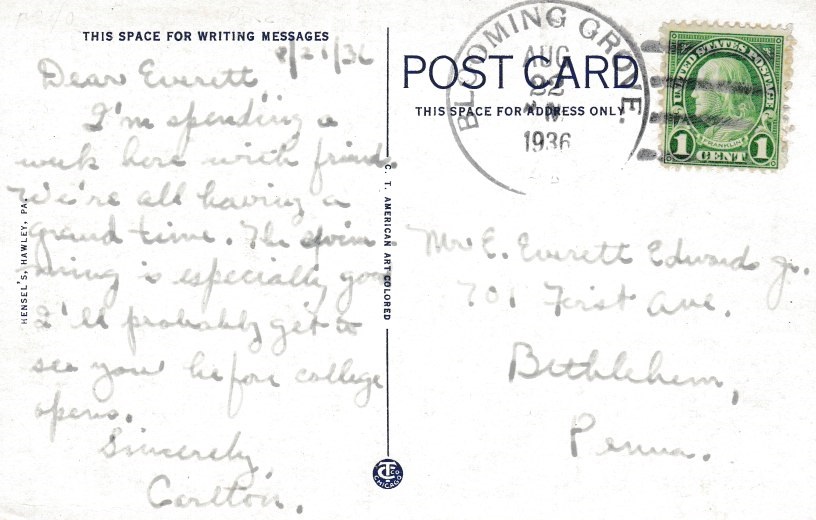 THIS SPACE FOR WRITING MESSAGES
8/21/36
Dear Everett
I'm spending a
week here with friends.
We're all having a
grand time. The swim-
ming is especially good
I'll probably get to
see you before college
opens.
Sincerely,
Carlton.
HENSEL'S, HAWLEY, PA.
C. T. AMERICAN ART COLORED
CT
CHICAGO
POST CARD
THIS SPACE FOR ADDRESS ONLY
BLOOMING GROVE.
AUG
22
1936
UNITED STATES POSTAGE
FRANKLIN
1 CENT 1
Mr E. Everett Edwards Jr.
701 First Ave.
Bethlehem,
Penna.